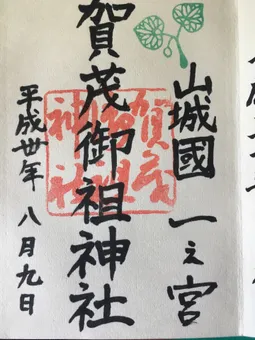 山城國 一之宮
賀茂御祖神社
平成卅年 八月九日
賀茂
御祖
神社